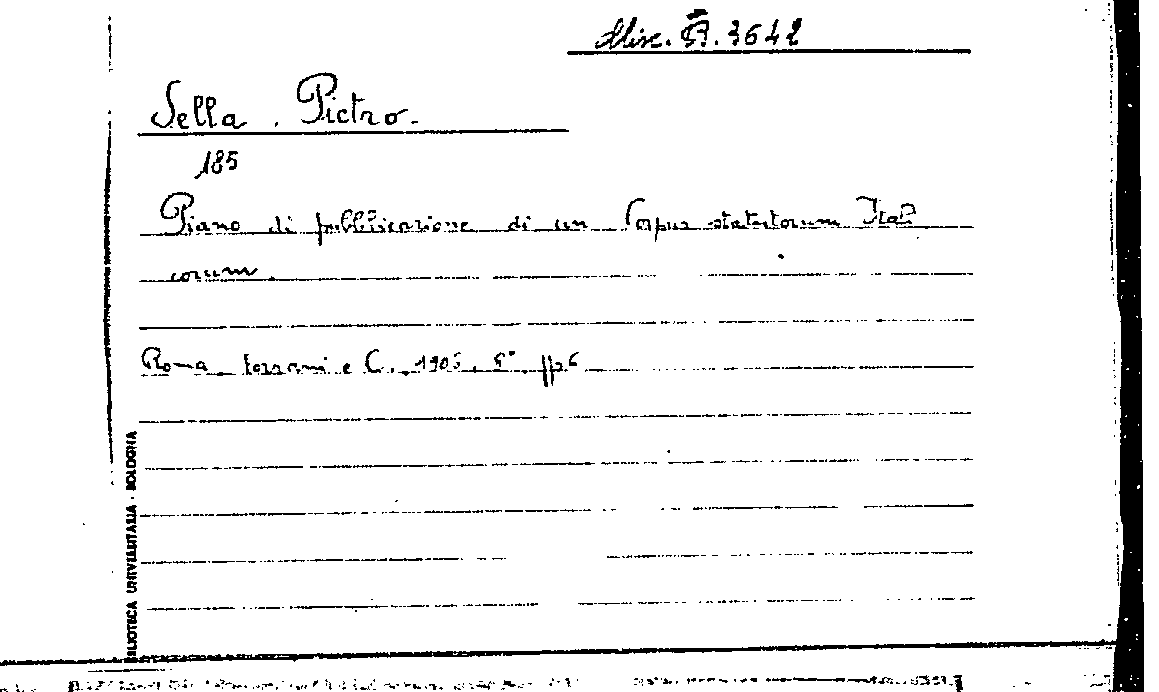 Misc. B. 3642
Sella. Pietro.
185
Piano di pubblicazione di un Corpus statutorum Itali
corum.
Roma Forzani e C. 1905. 8° pp 6
BIBLIOTECA UNIVERSITARIA - BOLOGNA